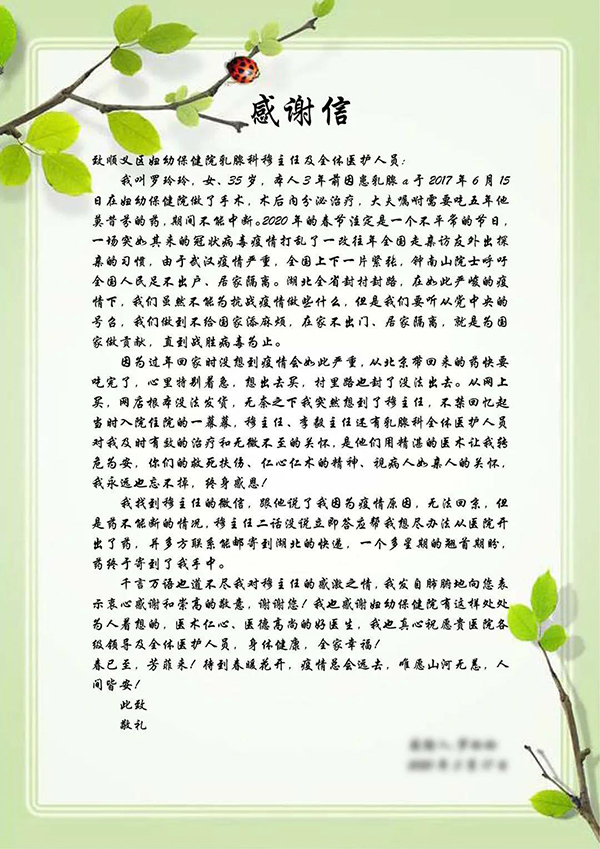 感谢信
致顺义区妇幼保健院乳腺科穆主任及全体医护人员：
我叫罗玲玲，女、35岁，本人3年前因患乳腺a于2017年6月15
日在妇幼保健院做了手术，术后内分泌治疗，大夫嘱咐需要吃五年他
莫昔芬的药，期间不能中断。2020年的春节注定是一个不平常的节日，
一场突如其来的冠状病毒疫情打乱了一改往年全国走亲访友外出探
亲的习惯，由于武汉疫情严重，全国上下一片紧张，钟南山院士呼吁
全国人民足不出户、居家隔离。湖北全省封村封路，在如此严峻的疫
情下，我们虽然不能为抗战疫情做些什么，但是我们要听从党中央的
号召，我们做到不给国家添麻烦，在家不出门、居家隔离，就是为国
家做贡献，直到战胜病毒为止。
因为过年回家时没想到疫情会如此严重，从北京带回来的药快要
吃完了，心里特别着急，想出去买，村里路也封了没法出去。从网上
买，网店根本没法发货，无奈之下我突然想到了穆主任，不禁回忆起
当时入院住院的一幕幕，穆主任、李毅主任还有乳腺科全体医护人员
对我及时有效的治疗和无微不至的关怀，是他们用精湛的医术让我转
危为安，你们的救死扶伤、仁心仁术的精神、视病人如亲人的关怀，
我永远也忘不掉，终身感恩！
我找到穆主任的微信，跟他说了我因为疫情原因，无法回京，但
是药不能断的情况，穆主任二话没说立即答应帮我想尽办法从医院开
出了药，并多方联系能邮寄到湖北的快递，一个多星期的翘首期盼，
药终于寄到了我手中。
千言万语也道不尽我对穆主任的感激之情，我发自肺腑地向您表
示衷心感谢和崇高的敬意，谢谢您！我也感谢妇幼保健院有这样处处
为人着想的，医术仁心、医德高尚的好医生，我也真心祝愿贵医院各
级领导及全体医护人员，身体健康，全家幸福！
春已至，芳菲来！待到春暖花开，疫情总会远去，唯愿山河无恙，人
间皆安！
此致
敬礼